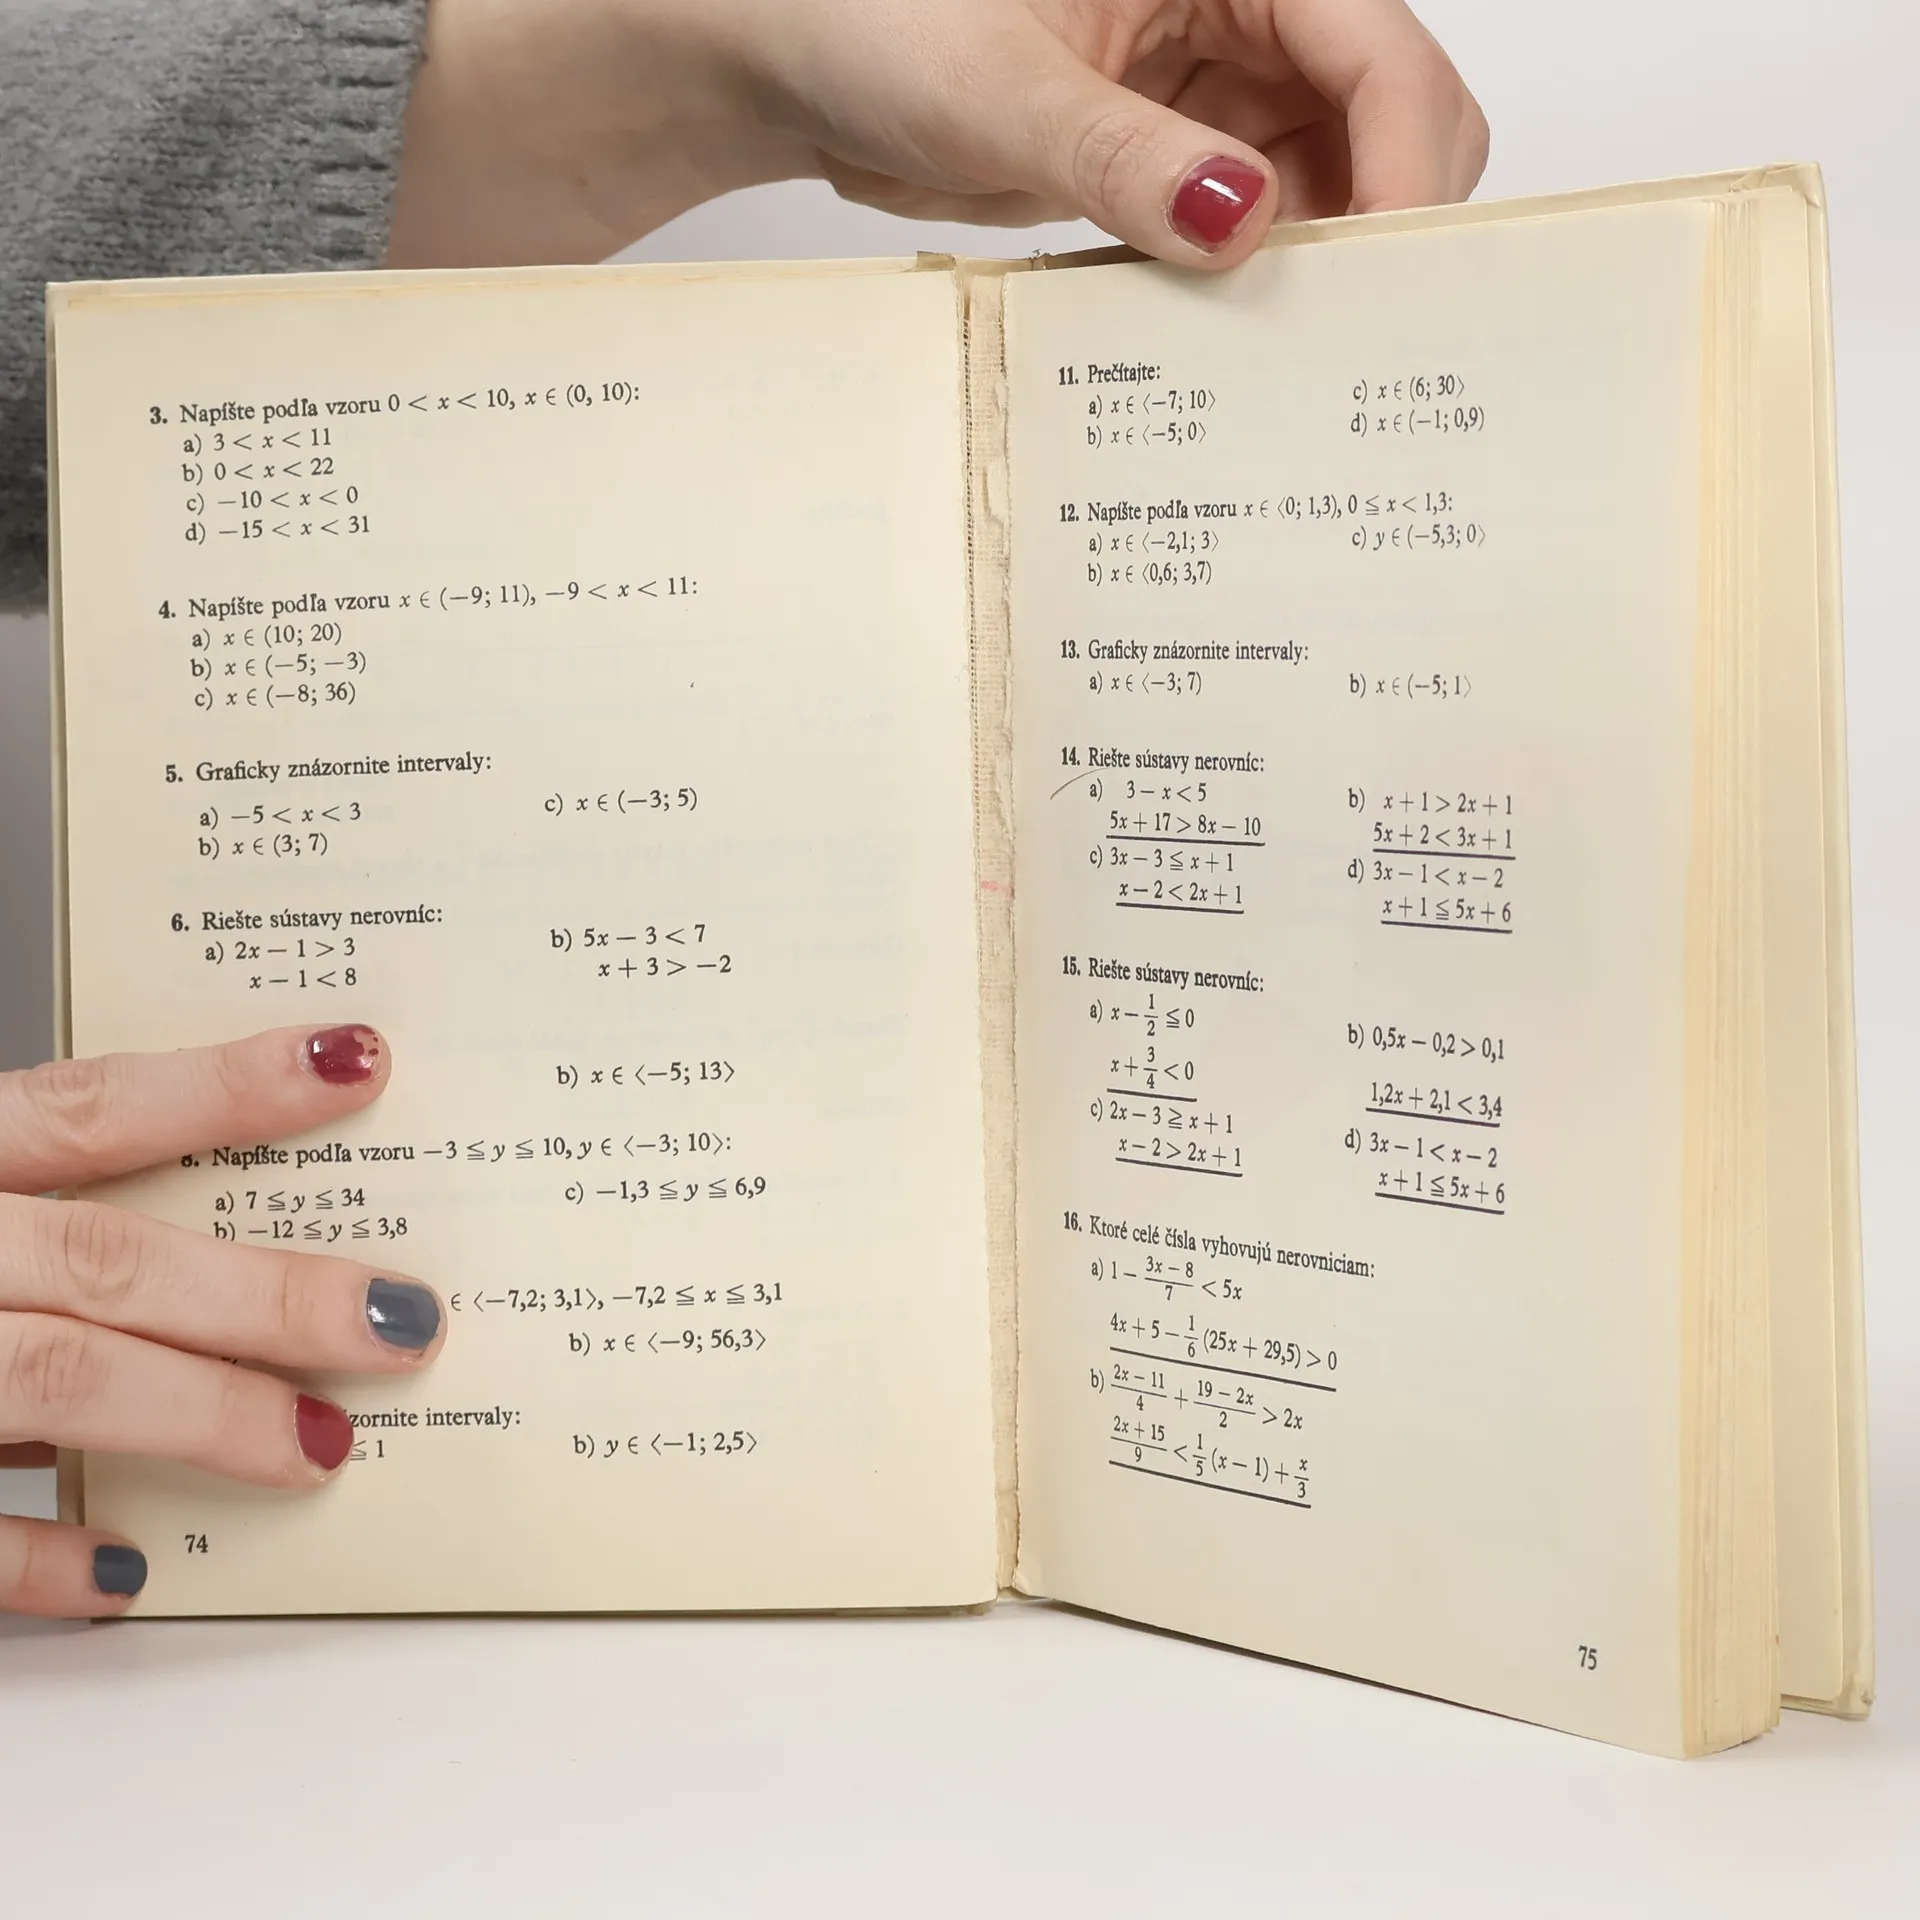 3. Napíšte podľa vzoru 0 < x < 10, x ∈ (0, 10):
a) 3 < x < 11
b) 0 < x < 22
c) −10 < x < 0
d) −15 < x < 31
4. Napíšte podľa vzoru x ∈ (−9; 11), −9 < x < 11:
a) x ∈ (10; 20)
b) x ∈ (−5; −3)
c) x ∈ (−8; 36)
5. Graficky znázornite intervaly:
a) −5 < x < 3
c) x ∈ (−3; 5)
b) x ∈ (3; 7)
6. Riešte sústavy nerovníc:
a) 2x − 1 > 3
x − 1 < 8
b) 5x − 3 < 7
x + 3 > −2
b) x ∈ ⟨−5; 13⟩
8. Napíšte podľa vzoru −3 ≦ y ≦ 10, y ∈ ⟨−3; 10⟩:
a) 7 ≦ y ≦ 34
c) −1,3 ≦ y ≦ 6,9
b) −12 ≦ y ≦ 3,8
∈ ⟨−7,2; 3,1⟩, −7,2 ≦ x ≦ 3,1
b) x ∈ ⟨−9; 56,3⟩
intervaly:
≦ 1
b) y ∈ ⟨−1; 2,5⟩
74
11. Prečítajte:
a) x ∈ ⟨−7; 10⟩
c) x ∈ (6; 30⟩
b) x ∈ ⟨−5; 0⟩
d) x ∈ (−1; 0,9)
12. Napíšte podľa vzoru x ∈ ⟨0; 1,3), 0 ≦ x < 1,3:
a) x ∈ ⟨−2,1; 3⟩
c) y ∈ (−5,3; 0⟩
b) x ∈ ⟨0,6; 3,7)
13. Graficky znázornite intervaly:
a) x ∈ ⟨−3; 7)
b) x ∈ (−5; 1⟩
14. Riešte sústavy nerovníc:
a) 3 − x < 5
5x + 17 > 8x − 10
b) x + 1 > 2x + 1
5x + 2 < 3x + 1
c) 3x − 3 ≦ x + 1
x − 2 < 2x + 1
d) 3x − 1 < x − 2
x + 1 ≦ 5x + 6
15. Riešte sústavy nerovníc:
a) x − 1/2 ≦ 0
x + 3/4 < 0
b) 0,5x − 0,2 > 0,1
1,2x + 2,1 < 3,4
c) 2x − 3 ≧ x + 1
x − 2 > 2x + 1
d) 3x − 1 < x − 2
x + 1 ≦ 5x + 6
16. Ktoré celé čísla vyhovujú nerovniciam:
a) 1 − (3x − 8)/7 < 5x
4x + 5 − 1/6 (25x + 29,5) > 0
b) (2x − 11)/4 + (19 − 2x)/2 > 2x
(2x + 15)/9 < 1/5 (x − 1) + x/3
75